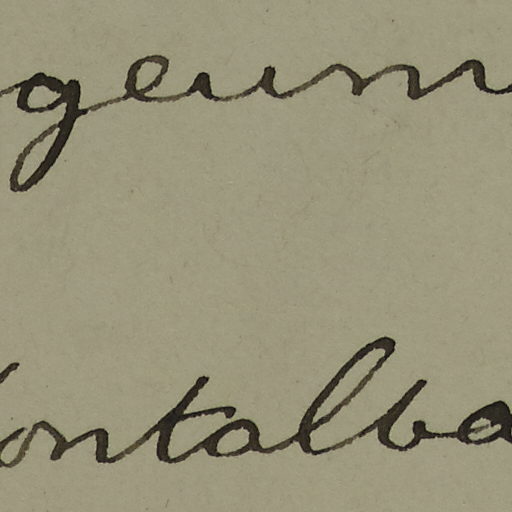 geum
ontalba